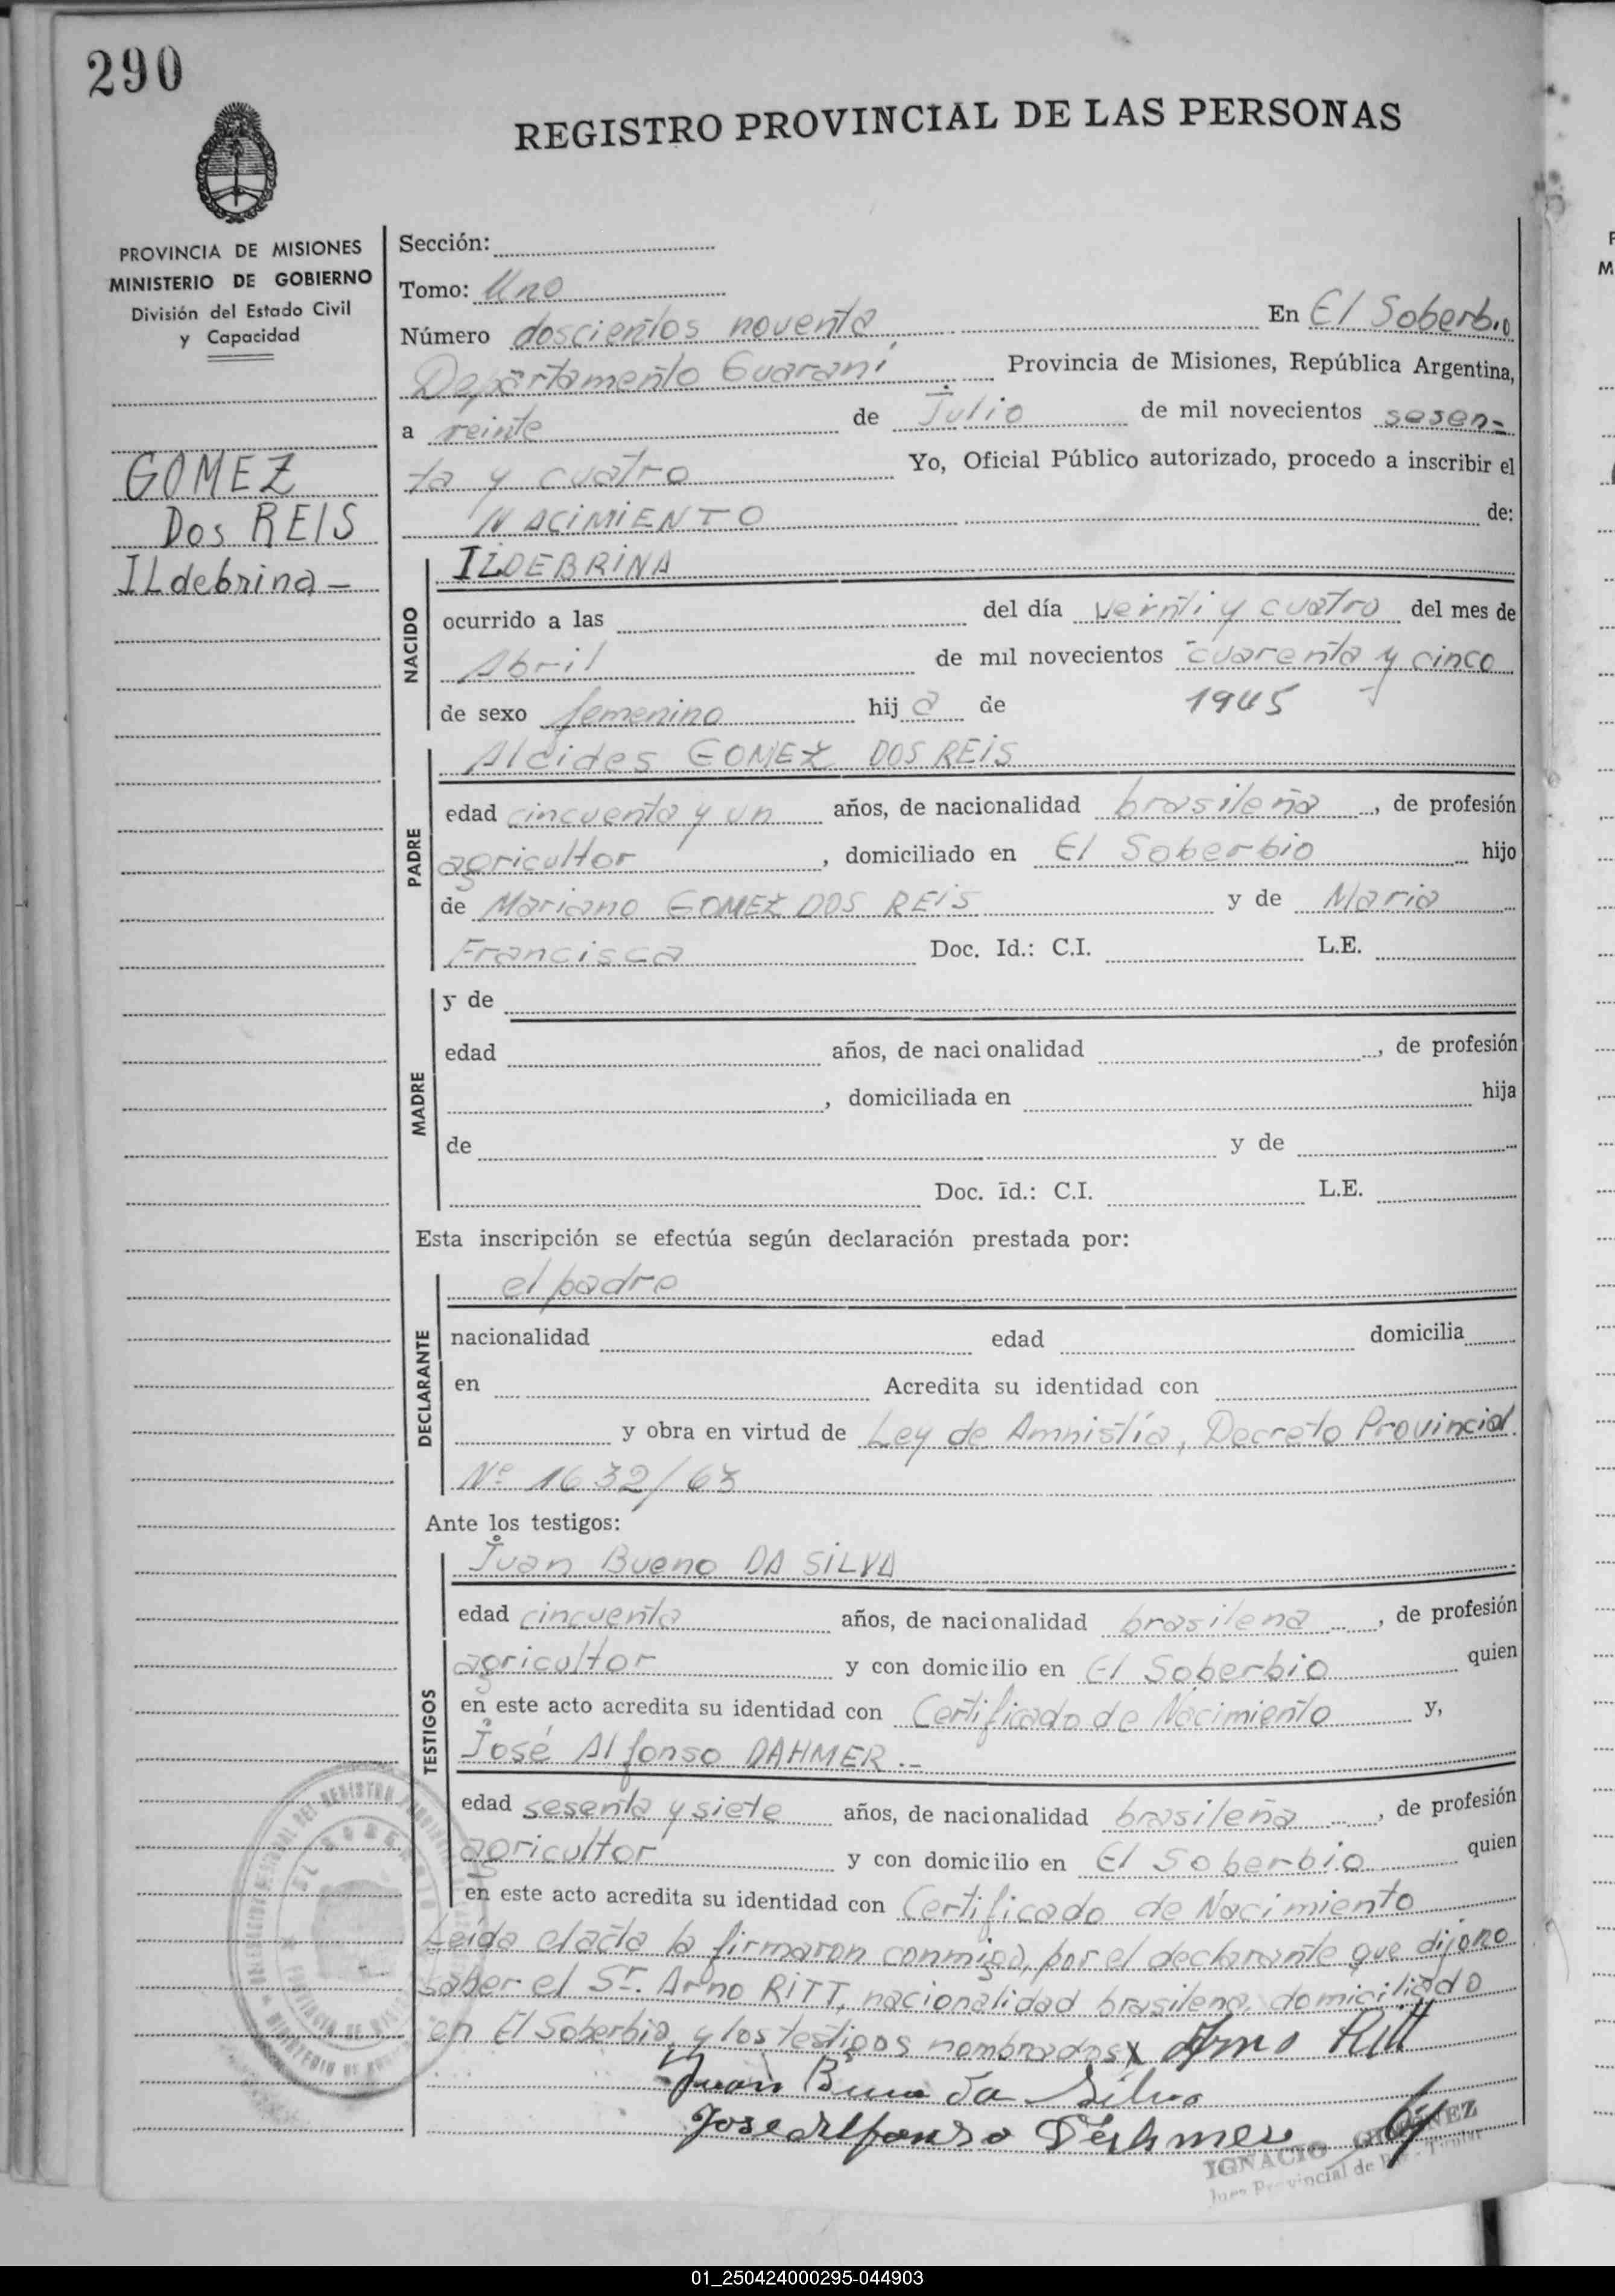 290
REGISTRO PROVINCIAL DE LAS PERSONAS
PROVINCIA DE MISIONES
MINISTERIO DE GOBIERNO
División del Estado Civil
y Capacidad
GOMEZ
Dos REIS
ILdebrina -
Sección:
Tomo: Uno
Número doscientos noventa En El Soberbio
Departamento Guaraní Provincia de Misiones, República Argentina,
a veinte de Julio de mil novecientos sesen-
ta y cuatro Yo, Oficial Público autorizado, procedo a inscribir el
NACIMIENTO de:
NACIDO
ILDEBRINA
ocurrido a las del día veinti y cuatro del mes de
Abril de mil novecientos cuarenta y cinco
de sexo femenino hija de 1945
PADRE
Alcides GOMEZ DOS REIS
edad cincuenta y un años, de nacionalidad brasileña, de profesión
agricultor, domiciliado en El Soberbio hijo
de Mariano GOMEZ DOS REIS y de Maria
Francisca Doc. Id.: C.I. L.E.
MADRE
y de
edad años, de nacionalidad , de profesión
, domiciliada en hija
de y de
Doc. Id.: C.I. L.E.
Esta inscripción se efectúa según declaración prestada por:
DECLARANTE
el padre
nacionalidad edad domicilia
en Acredita su identidad con
y obra en virtud de Ley de Amnistía, Decreto Provincial
Nº 1632/63
Ante los testigos:
TESTIGOS
Juan Bueno DA SILVA
edad cincuenta años, de nacionalidad brasilena, de profesión
agricultor y con domicilio en El Soberbio quien
en este acto acredita su identidad con Certificado de Nacimiento y,
José Alfonso DAHMER.-
edad sesenta y siete años, de nacionalidad brasileña, de profesión
agricultor y con domicilio en El Soberbio quien
en este acto acredita su identidad con Certificado de Nacimiento
Leída el acta la firmaron conmigo, por el declarante que dijo no
saber el Sr. Arno RITT, nacionalidad brasilena, domiciliado
en El Soberbio, y los testigos nombrados x Arno Ritt
Juan Bueno da Silva
Jose Alfonso Dahmer
IGNACIO
Juez Provincial de Paz - Titular
01_250424000295-044903